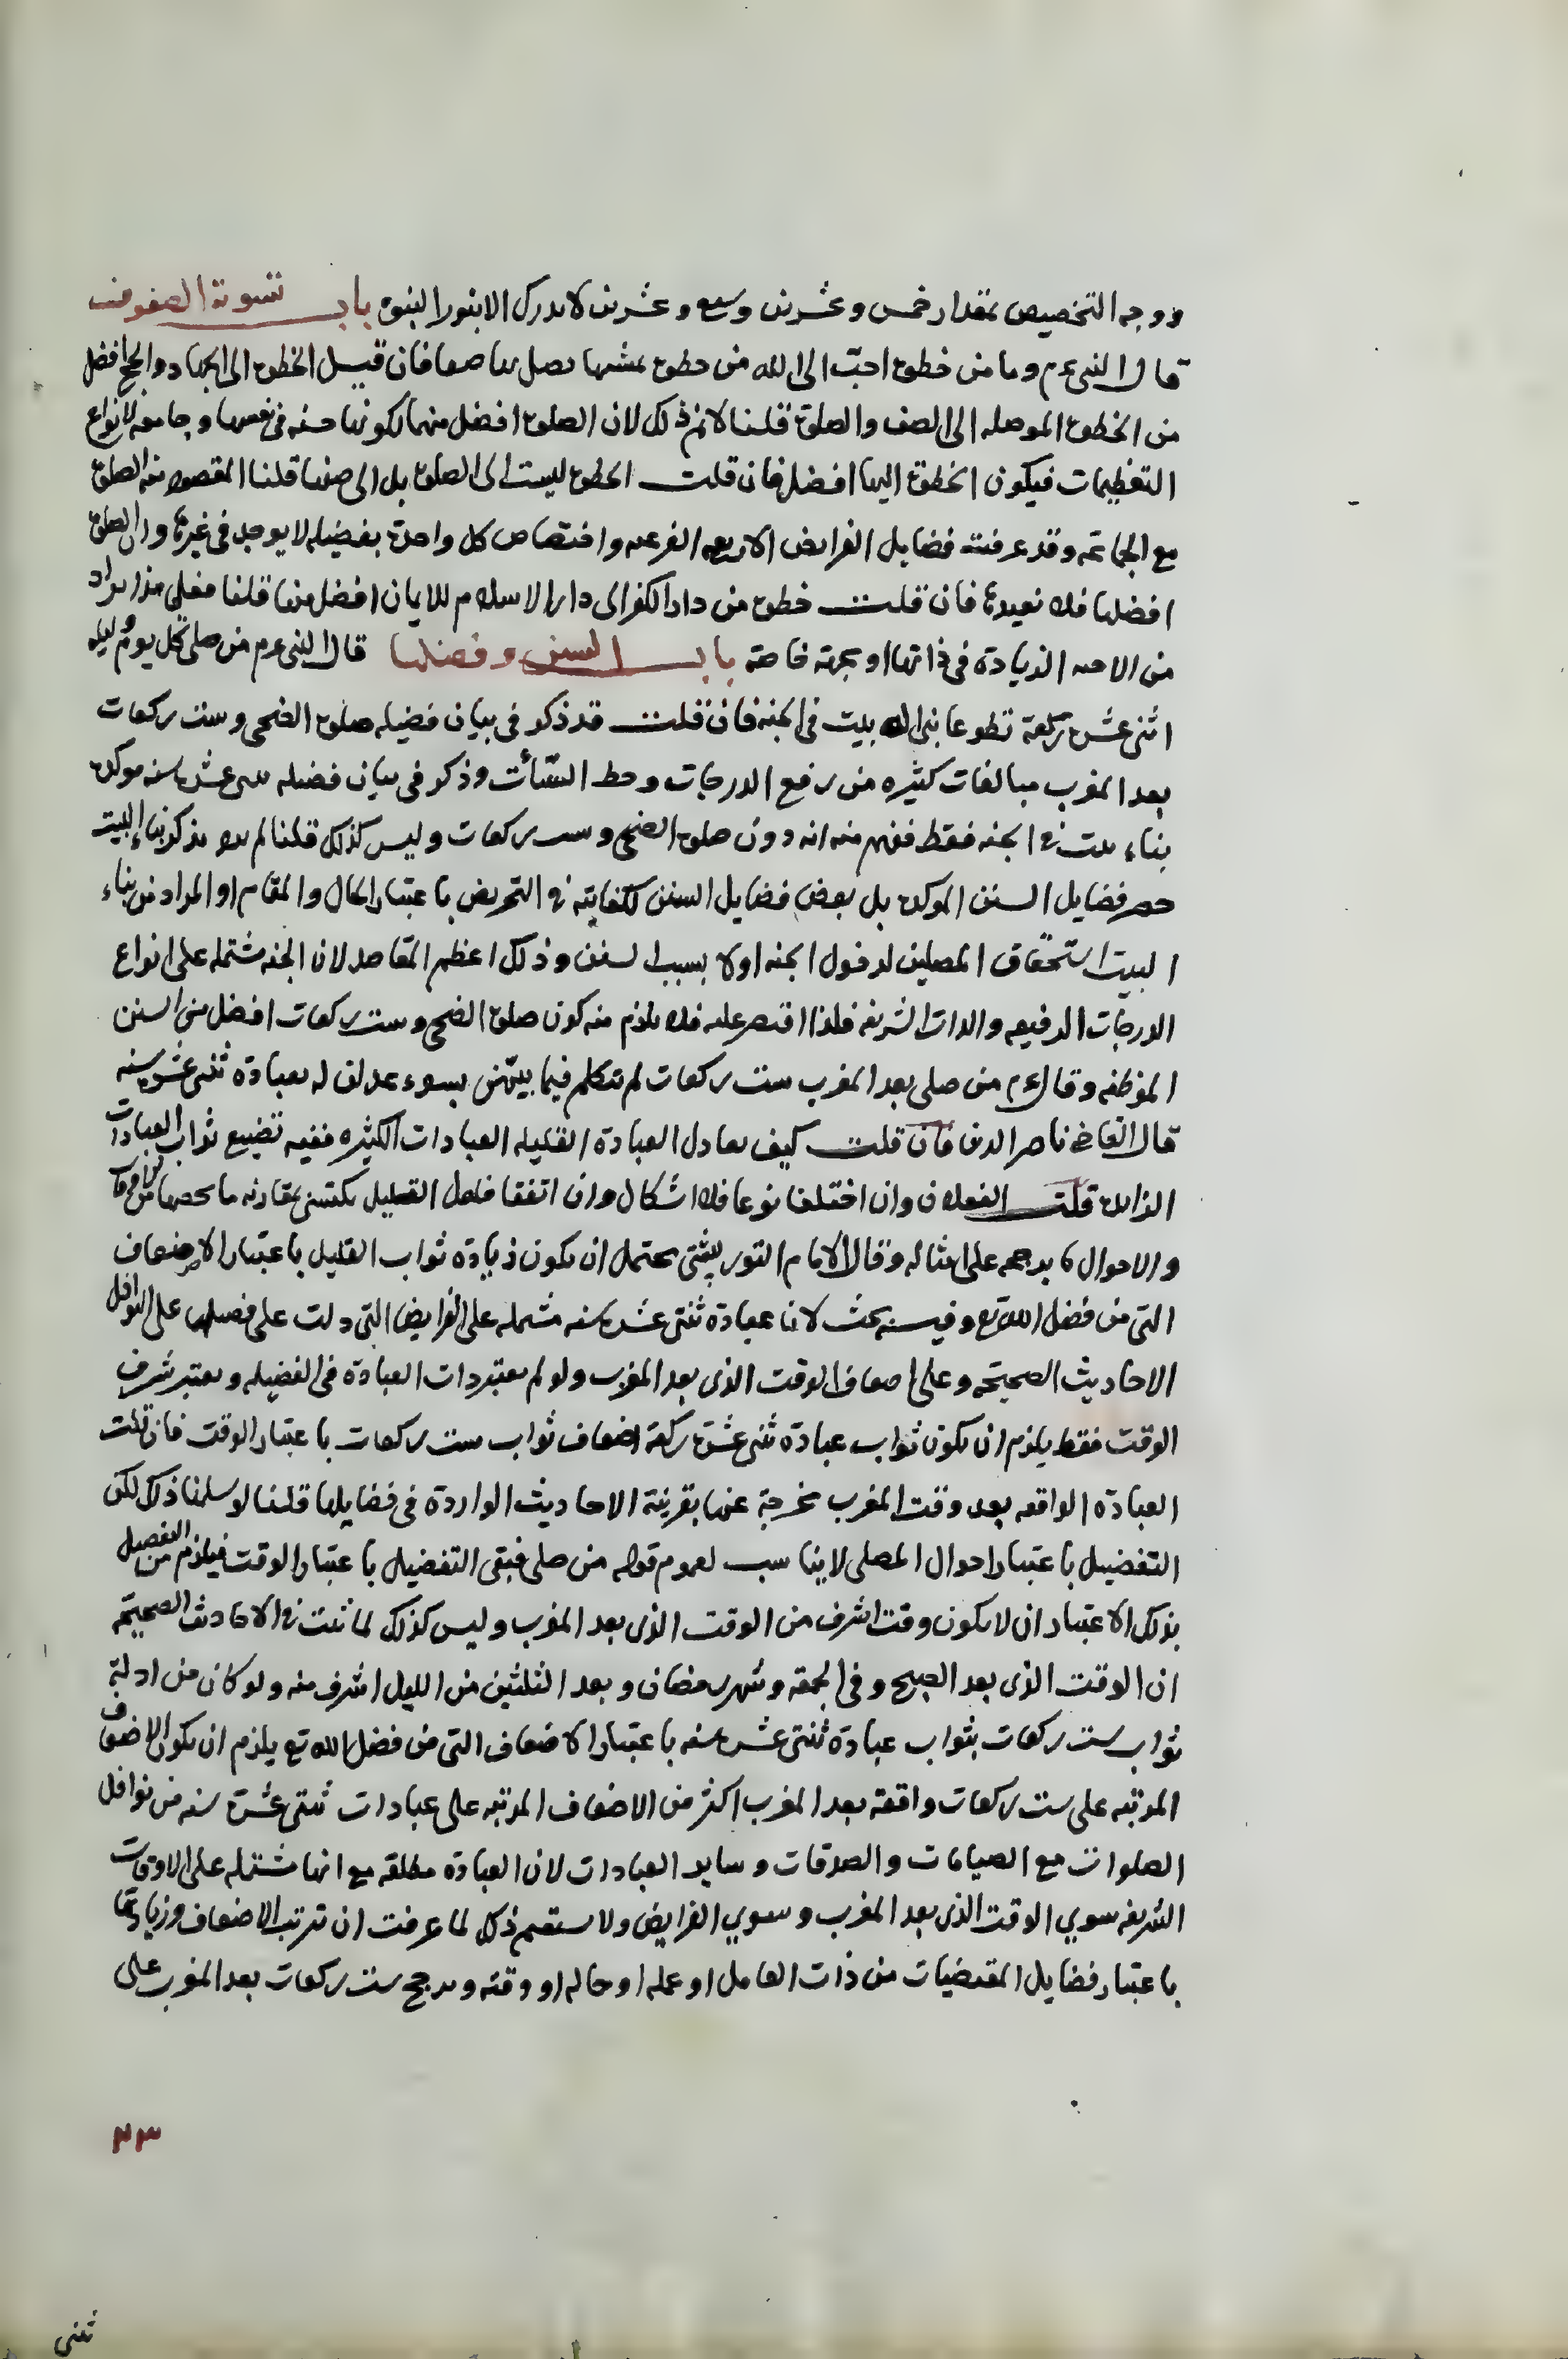 ووجه التخصيص بمقدار خمس وعشرين وسبع وعشرين لا يدرك الا بنور النبوه باب تسوية الصفوف
قال النبى عم وما من خطوة احبّ الى الله من خطوة يمشيها يصل بها صفا فان قيل الخطوة الى الجهاد والحج افضل
من الخطوة الموصله الى الصف والصلوة قلنا لانم ذلك لان الصلوة افضل منهما لكونها حسنه فى نفسها وجامعه لانواع
التعظيمات فيكون الخطوة اليها افضل فان قلت الخطوة ليست الى الصلوة بل الى صفها قلنا المقصود منه الصلوة
مع الجماعة وقد عرفت فضايل الفرايض الاربعه الفرعيه واختصاص كل واحدة بفضيله لا يوجد فى غيرها وان الصلوة
افضلها فلا نعيدها فان قلت خطوة من دار الكفر الى دار الاسلام للايمان افضل منها قلنا فعلى هذا يراد
من الاحب الزيادة فى ذاتها او بجهة خاصة باب السنن وفضلها قال النبى عم من صلى كل يوم وليله
اثنى عشرة ركعة تطوعا بنى الله بيت فى الجنه فان قلت قد ذكر فى بيان فضيله صلوة الضحى وست ركعات
بعد المغرب مبالغات كثيره من رفع الدرجات وحط السّيأت وذكر فى بيان فضيله ثنى عشرة سنه موكده
بناء بيت فى الجنه فقط ففهم منه انه دون صلوة الضحى وست ركعات وليس كذلك قلنا لم يرد بذكر بناء البيت
حصر فضايل السنن الموكده بل بعض فضايل السنن لكفايته فى التحريض باعتبار الحال والمقام او المراد من بناء
البيت استحقاق المصلين لدخول الجنه اولا بسبب السنن وذلك اعظم المقاصد لان الجنه مشتمله على انواع
الدرجات الرفيعه والذات الشريفه فلذا اقتصر عليه فلا يلزم منه كون صلوة الضحى وست ركعات افضل من السنن
الموظفه وقال عم من صلى بعد المغرب ست ركعات لم يتكلم فيما بينهن بسوء عدلن له بعبادة ثنى عشرة سنه
قال القاضى ناصر الدين فان قلت كيف يعادل العبادة القليله العبادات الكثيره ففيه تضييع ثواب العبادات
الزايده قلت الفعلان وان اختلفا نوعا فلا اشكال وان اتفقا فلعل القليل يكتسى بمقارنه ما يخصها من الاوقات
والاحوال ما يرجحه على امثاله وقال الامام التوربشتى يحتمل ان يكون زيادة ثواب القليل باعتبار الاضعاف
التى من فضل الله تع وفيه بحث لان عبادة ثنتى عشرة سنه مشتمله على الفرايض التى دلت على فضيلها على النوافل
الاحاديث الصحيحه وعلى اضعاف الوقت الذى بعد المغرب ولو لم يعتبر ذات العبادة فى الفضيله ويعتبر شرف
الوقت فقط يلزم ان يكون ثواب عبادة ثنى عشرة ركعة اضعاف ثواب ست ركعات باعتبار الوقت فان قلت
العباده الواقعه بعد وقت المغرب مخرجة عنها بقرينة الاحاديث الواردة فى فضايلها قلنا لو سلمنا ذلك لكن
التفضيل باعتبار احوال المصلى لا يناسب لعموم قوله من صلى فبقى التفضيل باعتبار الوقت فيلزم من التفضيل
بذلك الاعتبار ان لا يكون وقت اشرف من الوقت الذى بعد المغرب وليس كذلك لما ثبت فى الاحاديث الصحيحة
ان الوقت الذى بعد الصبح وفى الجمعه وشهر رمضان وبعد الثلثين من الليل اشرف منه ولو كان من ادلة
ثواب ست ركعات بثواب عبادة ثنتى عشرة سنه باعتبار الاضعاف التى من فضل الله تع يلزم ان يكون الاضعاف
المرتبه على ست ركعات واقعه بعد المغرب اكثر من الاضعاف المرتبه على عبادات ثنتى عشرة سنه من نوافل
الصلوات مع الصيامات والصدقات وساير العبادات لان العبادة مطلقه مع انها مشتمله على الاوقات
الشريفه سوي الوقت الذى بعد المغرب وسوي الفرايض ولا يستقيم ذلك لما عرفت ان ترتب الاضعاف وزيادتها
باعتبار فضايل المقتضيات من ذات العامل او عمله او حاله او وقته ويرجح ست ركعات بعد المغرب على
٣٣
ثنى